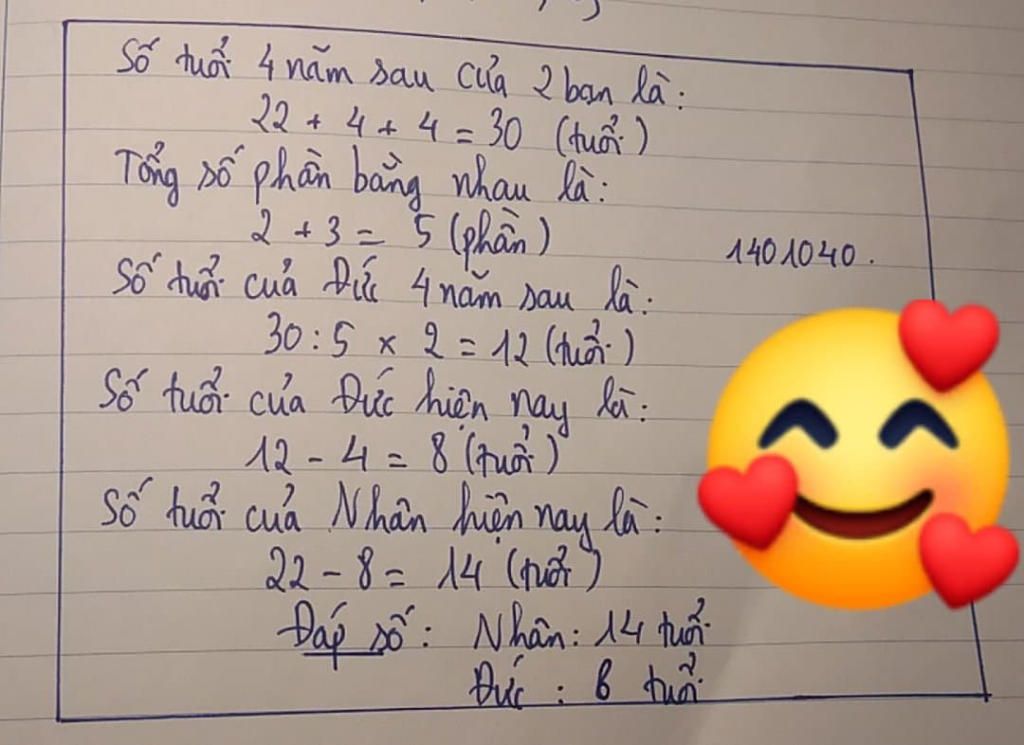 Số tuổi 4 năm sau của 2 bạn là:
22 + 4 + 4 = 30 (tuổi)
Tổng số phần bằng nhau là:
2 + 3 = 5 (phần)
1401040.
Số tuổi của Đức 4 năm sau là:
30 : 5 x 2 = 12 (tuổi)
Số tuổi của Đức hiện nay là:
12 - 4 = 8 (tuổi)
Số tuổi của Nhân hiện nay là:
22 - 8 = 14 (tuổi)
Đáp số: Nhân: 14 tuổi
Đức : 8 tuổi